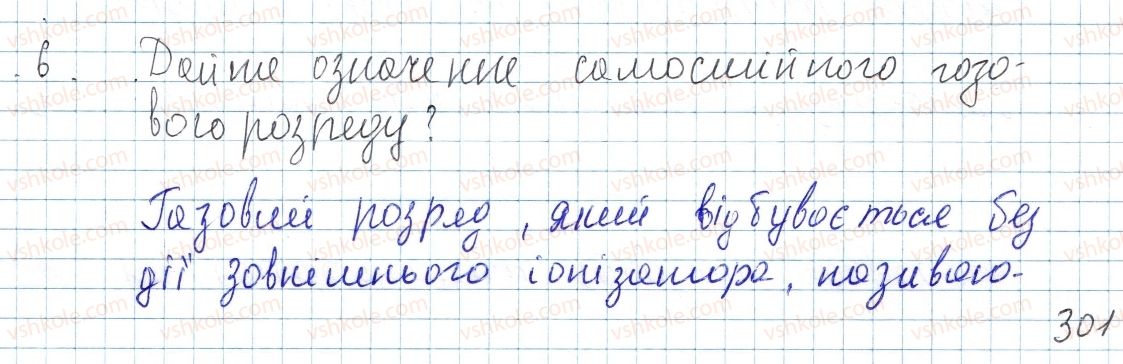 6. Дайте означення самостійного газо-
вого розряду?
Газовий розряд, який відбувається без
дії зовнішнього іонізатора, називаю-
301